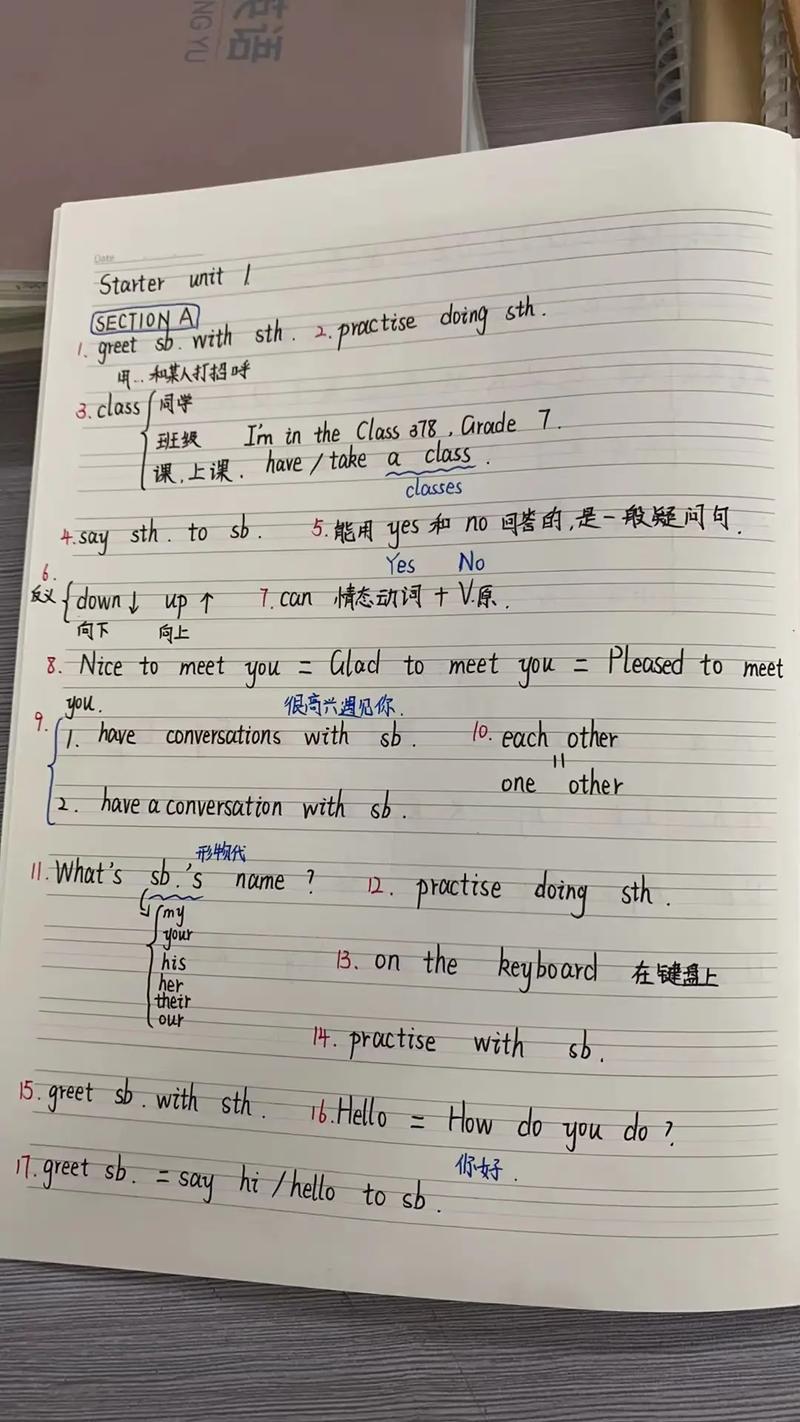 英语
NG YU
Date
Starter unit 1
SECTION A
1. greet sb. with sth. 2. practise doing sth.
用...和某人打招呼
3. class 同学
班级 I'm in the Class 378, Grade 7.
课,上课. have / take a class.
classes
4. say sth. to sb. 5. 能用 yes 和 no 回答的,是一般疑问句.
Yes No
6.
反义 down↓ up↑ 7. can 情态动词 + V.原.
向下 向上
8. Nice to meet you = Glad to meet you = Pleased to meet
you. 很高兴遇见你.
9. 1. have conversations with sb. 10. each other
=
one other
2. have a conversation with sb.
形物代
11. What's sb.'s name ? 12. practise doing sth.
my
your
his 13. on the keyboard 在键盘上
her
their
our
14. practise with sb.
15. greet sb. with sth. 16. Hello = How do you do ?
你好.
17. greet sb. = say hi / hello to sb.